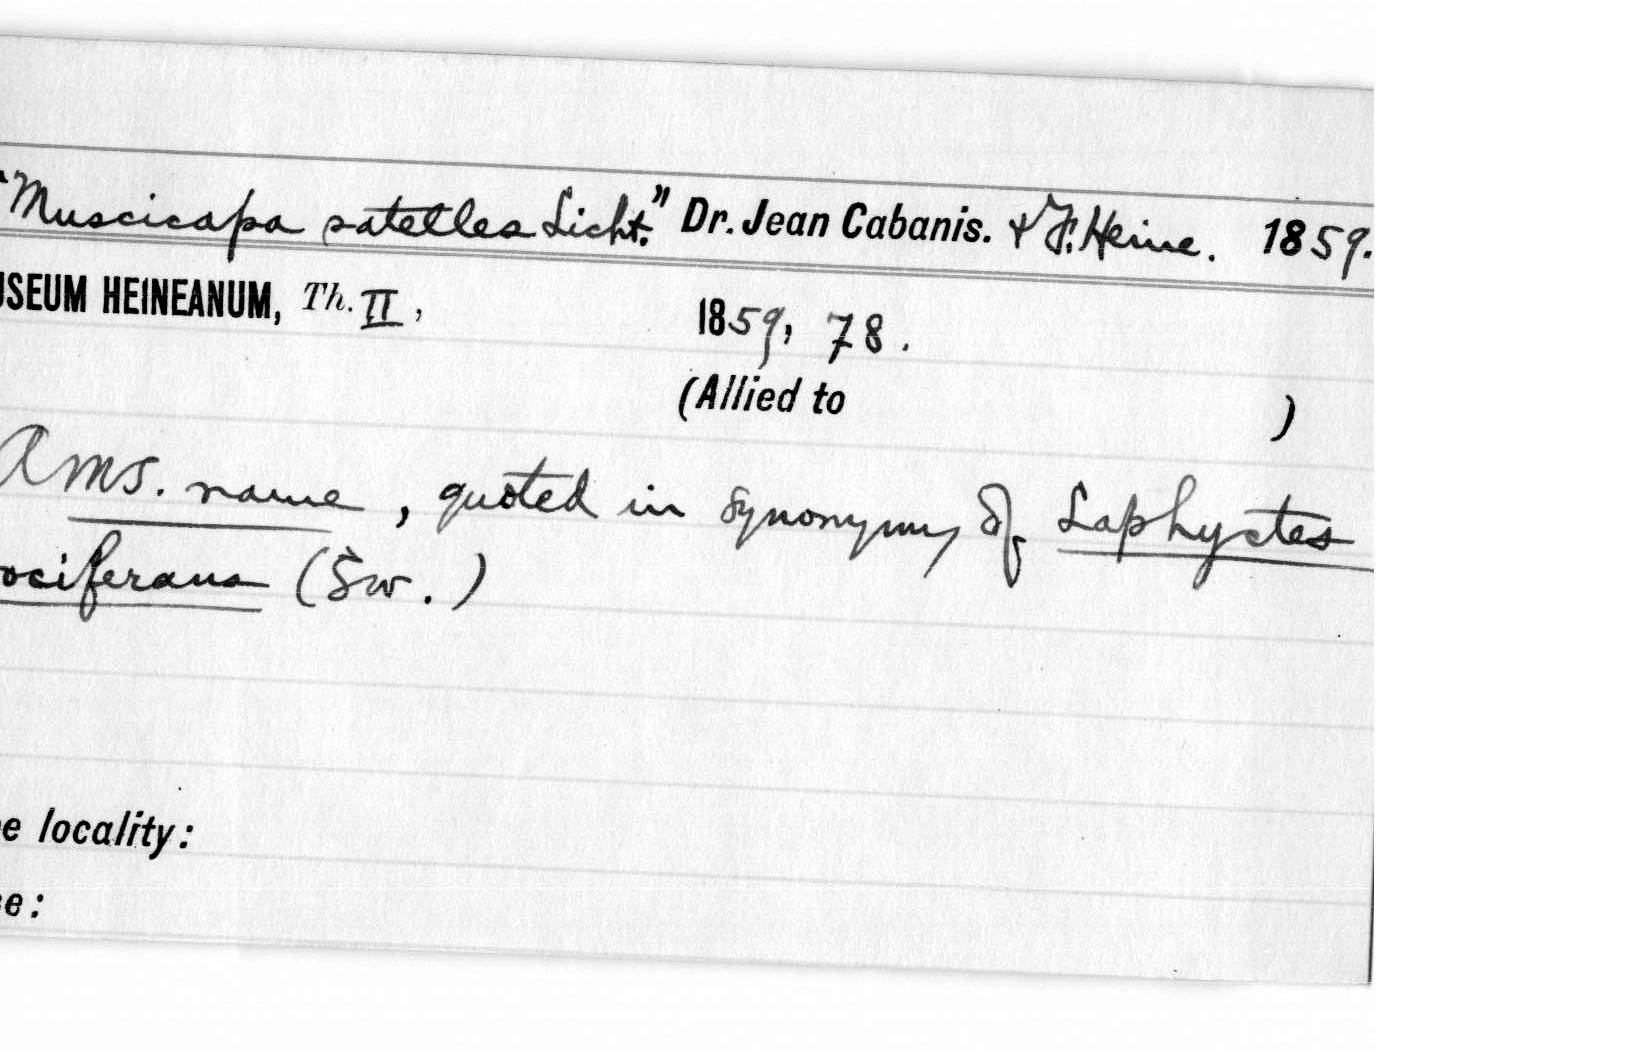 "Muscicapa satelles Licht." Dr. Jean Cabanis. & F. Heine. 1859.
USEUM HEINEANUM, Th. II, 1859, 78.
(Allied to )
A MS. name, quoted in synonymy of Laphyctes
ociferans (Sw.)
e locality:
e: